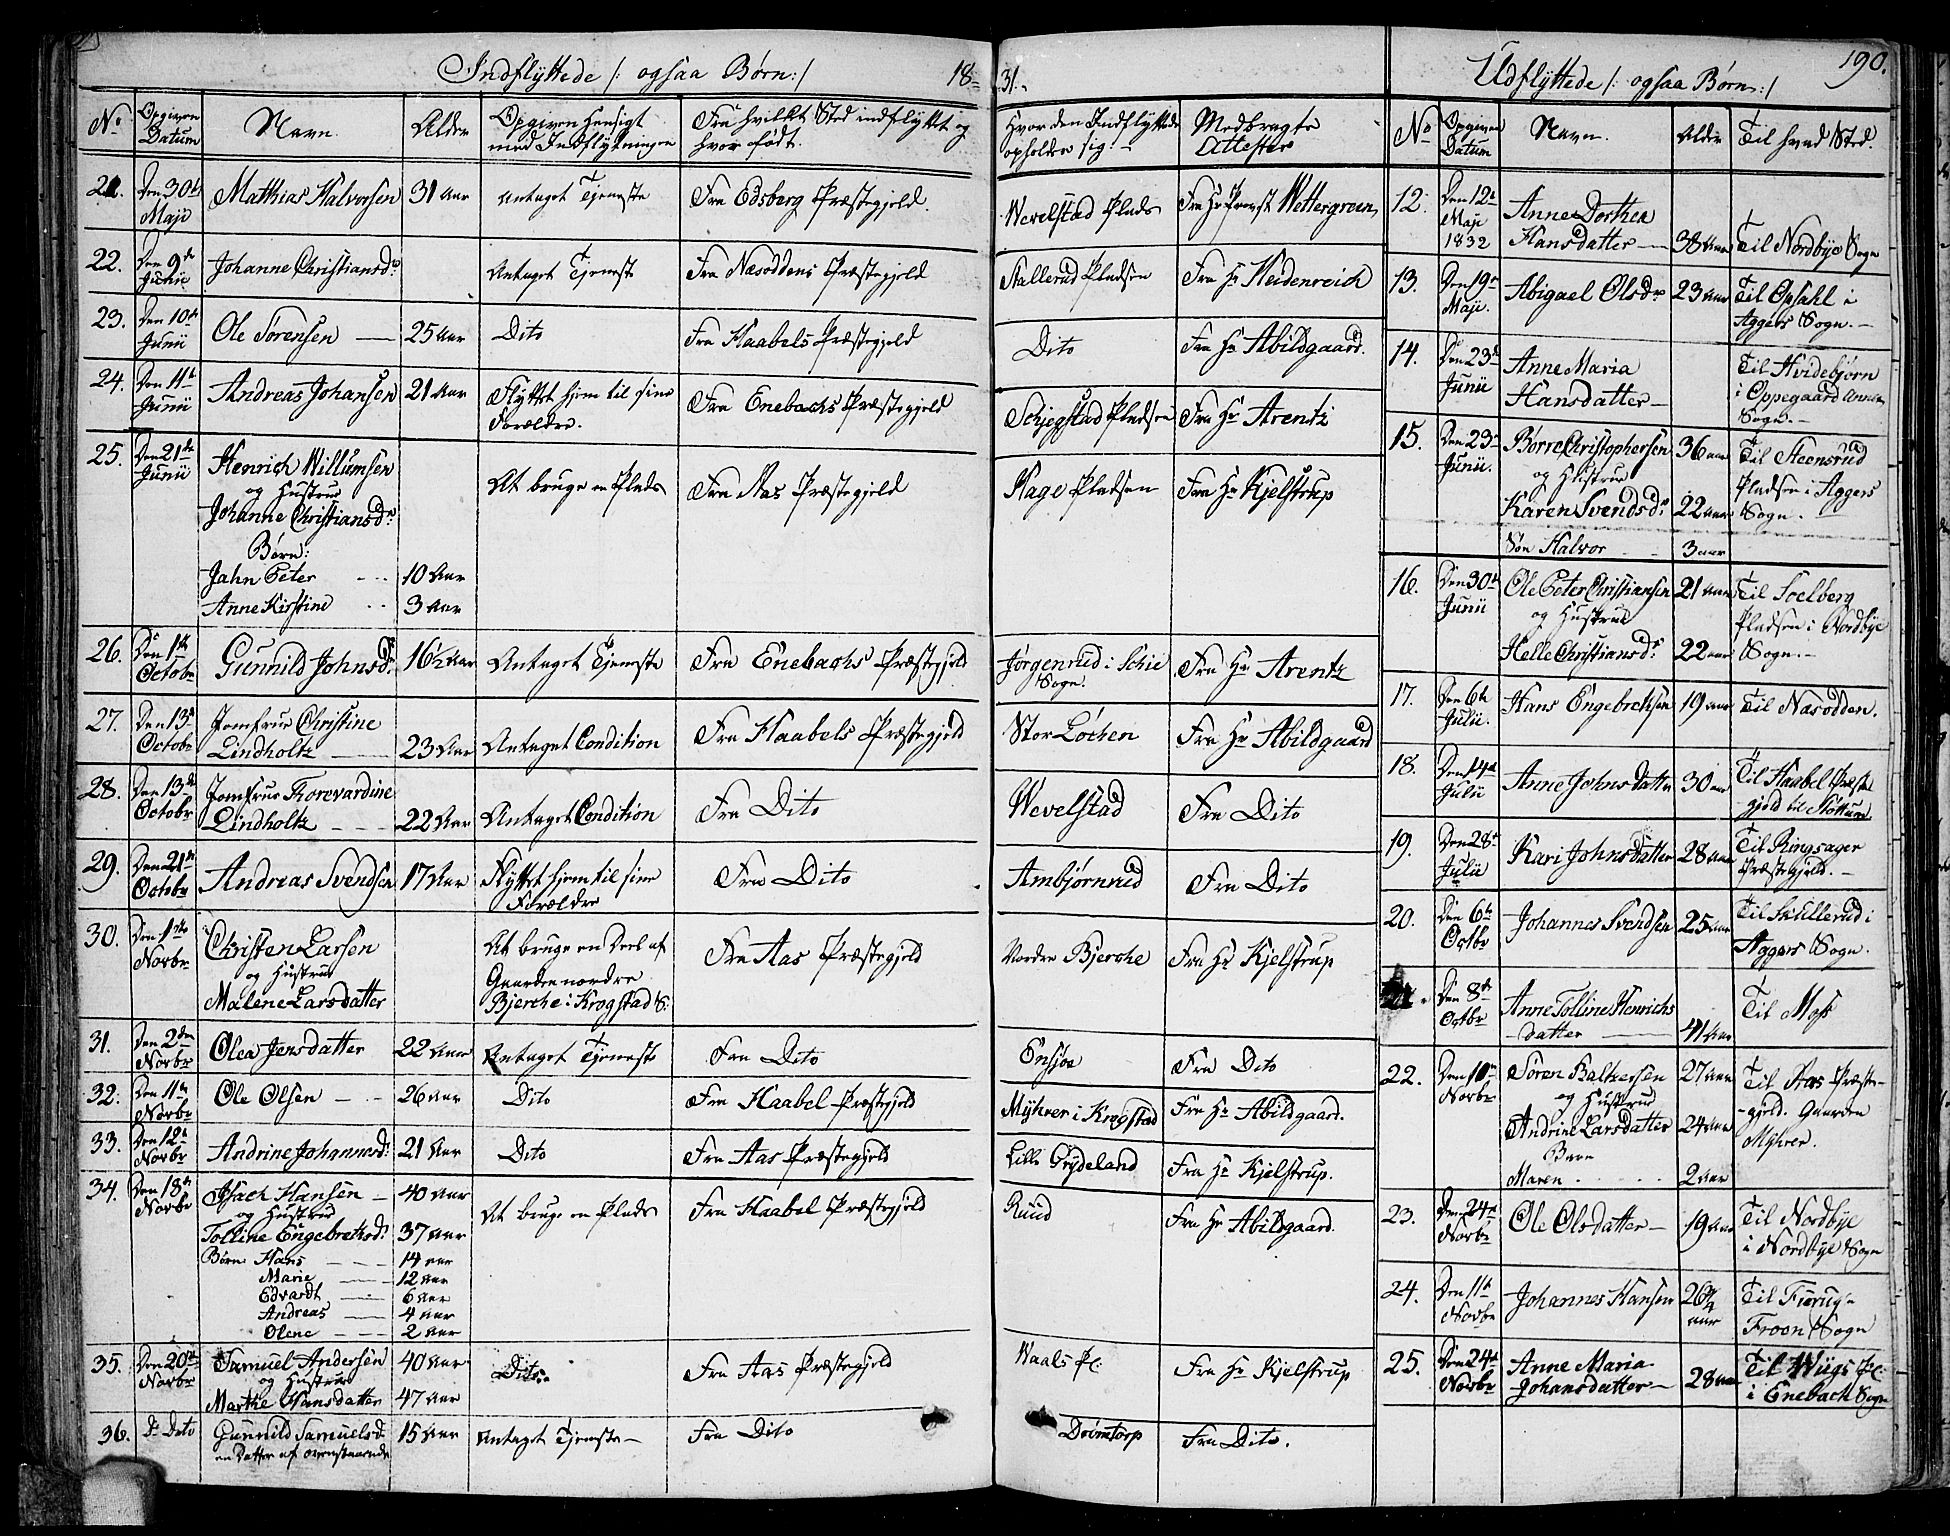 Indflyttede /: ogsaa Børn:/ 18
31.
Udflyttede /: ogsaa Børn:/ 190.
No Opgiven Datum Navn. Alder Opgiven Hensigt med Indflytningen Fra hvilket Sted indflyttet og hvor født. Hvor den Indflyttede opholder sig. Medbragte Attester
21. Den 30te Maji Matthias Halvorsen 31 Aar Antaget Tjeneste Fra Edsberg Præstegjeld. Wevelstad Plads Fra Hr Provst Wettergreen
22. Den 9de Junii Johanne Christiansdr Antaget Tjeneste Fra Næsoddens Præstegjeld Stallerud Pladsen Fra Hr Heidenreich
23. Den 10de Junii Ole Sørensen 25 Aar Dito Fra Haabels Præstegjeld Dito Fra Hr Abildgaard.
24. Den 11te Junii Andreas Johansen 21 Aar Flyttet hjem til sine Forældre. Fra Enebachs Præstegjeld Schjegstad Pladsen Fra Hr Arentz
25. Den 21de Junii Henrich Willumsen At bruge en Plads Fra Aas Præstegjeld Hage Pladsen Fra Hr Kjelstrup
og Hustrue
Johanne Christiansdr
Børn:
Jahn Peter 10 Aar
Anne Kirstine 3 Aar
26. Den 1ste Octobr Gunnild Johnsdr 16½ Aar Antaget Tjeneste Fra Enebachs Præstegjeld Jørgensrud i Schie Sogn. Fra Hr Arentz
27. Den 13de Octobr Jomfrue Christine Lindholtz 23 Aar Antaget Condition Fra Haabels Præstegjeld Stor Løchen Fra Hr Abildgaard
28. Den 13de Octobr Jomfrue Thorevardine Lindholtz 22 Aar Antaget Condition Fra Dito Wevelstad Fra Dito
29. Den 21de Octobr Andreas Svendsen 17 Aar Flyttet hjem til sine Forældre Fra Dito Ambjørnrud Fra Dito
30. Den 1ste Novbr Christen Larsen At bruge en Deel af Fra Aas Præstegjeld Nordre Bjerche Fra Hr Kjelstrup
og Hustrue Gaarden nordre
Malene Larsdatter Bjerche i Krogstad S:
31. Den 2den Novbr Olea Jensdatter 22 Aar Antaget Tjeneste Fra Dito Ensjøe Fra Dito
32. Den 11te Novbr Ole Olsen 26 Aar Dito Fra Haabel Præstegjeld Myhrer i Krogstad Fra Hr Abildgaard.
33. Den 12te Novbr Andrine Johannesdr 21 Aar Dito Fra Aas Præstegjeld Lille Grydeland Fra Hr Kjelstrup.
34. Den 18de Novbr Isach Hansen 40 Aar At bruge en Plads Fra Haabel Præstegjeld Ruud Fra Hr Abildgaard.
og Hustrue
Tolline Engebretsdr 37 Aar
Børn: Hans 14 Aar
Marie 12 Aar
Edvardt 6 Aar
Andreas 4 Aar
Olene 2 Aar
35. Den 20de Novbr Samuel Andersen 40 Aar Dito Fra Aas Præstegjeld Waals Pl: Fra Hr Kjelstrup
og Hustrue
Marthe Hansdatter 47 Aar
36. D: Dito Gunnild Samuelsdr 15 Aar Antaget Tjeneste Fra Dito Drømtorp Fra Dito.
en Datter af ovenstaaende
No Opgiven Datum Navn. Alder Til hvad Sted.
12. Den 12te Maji 1832 Anne Dorthea Hansdatter 38 Aar Til Nordbye Sogn
13. Den 19de Maji. Abigael Olsdr 23 Aar Til Opsahl i Aggers Sogn.
14. Den 23de Junii Anne Maria Hansdatter Til Hvidebjørn i Oppegaard Annex Sogn.
15. Den 23de Junii. Børre Christophersen 36 Aar Til Steensrud
og Hustrue Pladsen i Aggers
Karen Svendsdr 22 Aar Sogn.
Søn Halvor 3 Aar
16. Den 30te Junii Ole Peter Christiansen 21 Aar Til Soelberg
og Hustrue Pladsen i Nordbye
Helle Christiansdr 22 Aar Sogn.
17. Den 6te Julii. Hans Engebretsen 19 Aar Til Næsodden.
18. Den 14de Julii Anne Johnsdatter 30 Aar Til Haabel Præstegjeld til Støttum
19. Den 28de Julii Kari Johnsdatter 28 Aar Til Ringsager Præstegjeld.
20. Den 6te Octbr Johannes Svendsen 25 Aar Til Skullerud i Aggers Sogn.
21. Den 8de Octbr Anne Tolline Henrichsdatter 41 Aar Til Moss
22. Den 10de Novbr Søren Baltzersen 27 Aar Til Aas Præste-
og Hustrue gjeld. Gaarden
Andrine Larsdatter 24 Aar Myhrer.
Barn
Maren 2 Aar
23. Den 24de Novbr Ole Olsdatter 19 Aar Til Nordbye i Nordbye Sogn
24. Den 11te Novbr Johannes Hansen 26¼ Aar Til Fieruge Froon Sogn
25. Den 24de Novbr Anne Maria Johansdatter 28 Aar Til Wiigs Pl: i Enebach Sogn